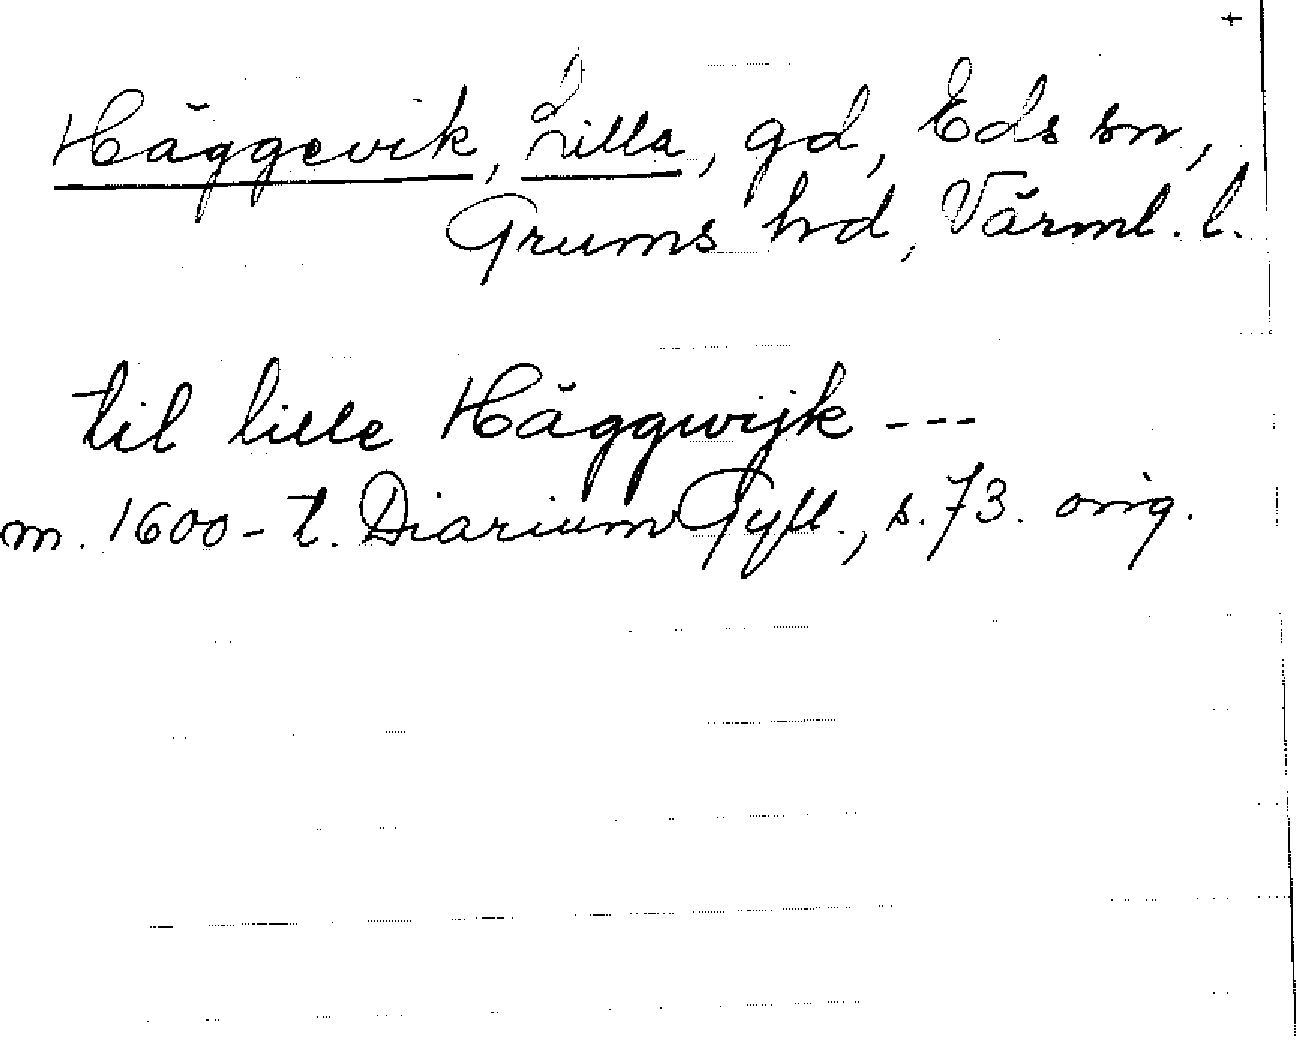 +
Häggevik, Lilla, gd, Eds sn,
Grums hd, Värml. l.
til lille Häggwijk ---
m. 1600-t. Diarium Gyll., s. 73. orig.